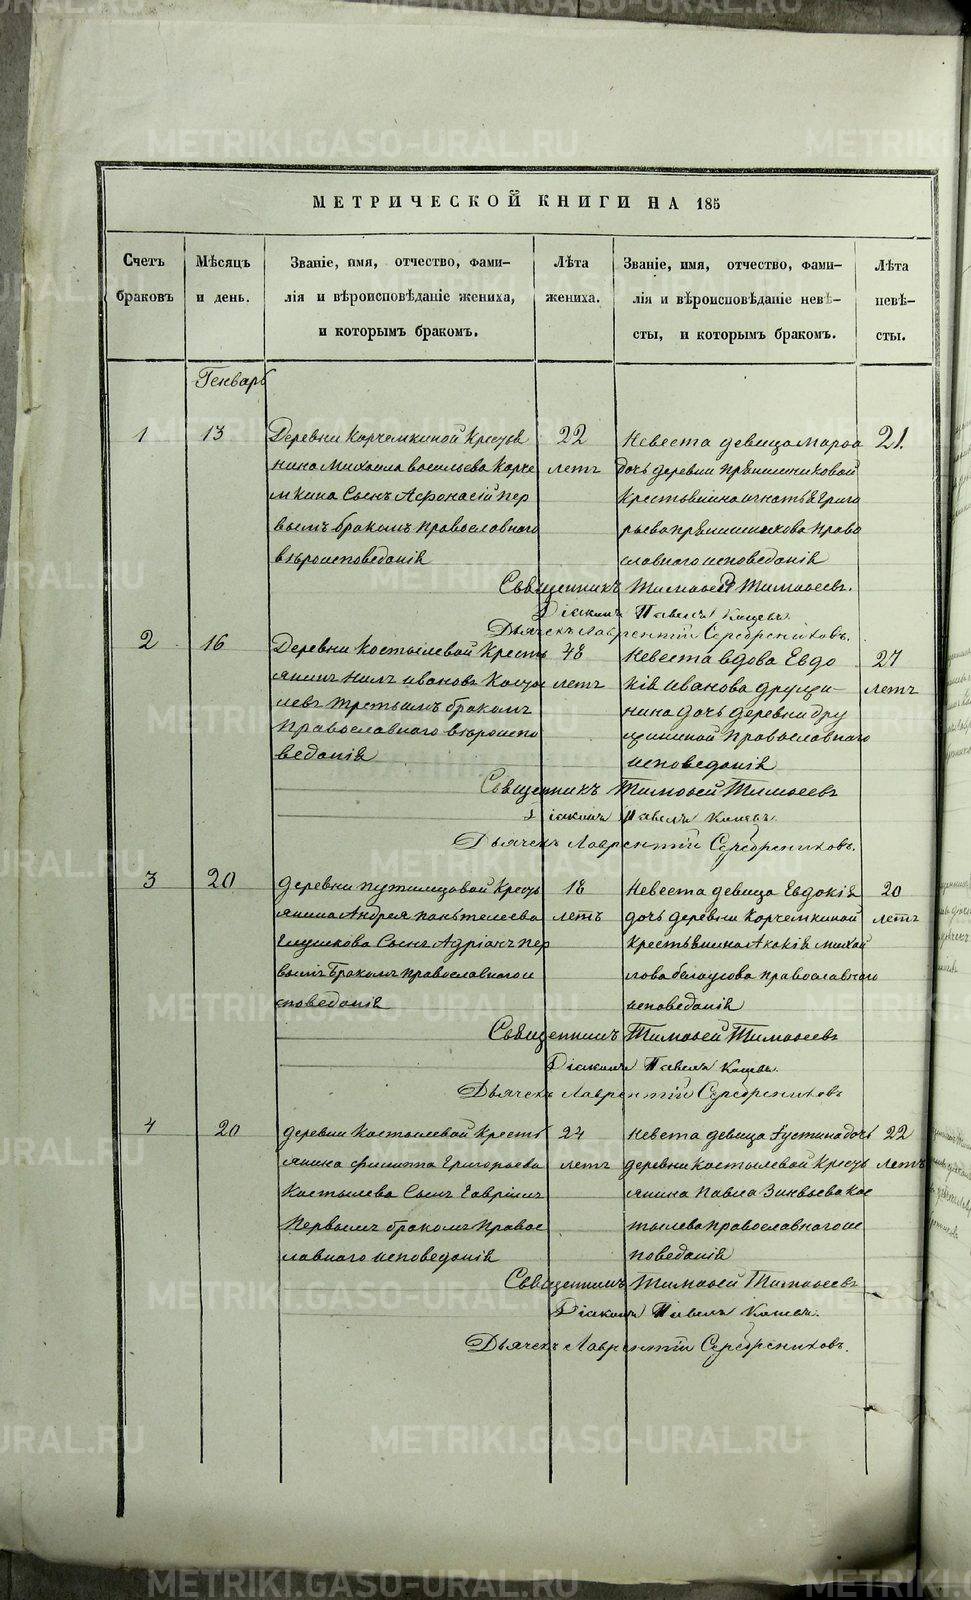 METRIKI.GASO-URAL.RU
МЕТРИЧЕСКОЙ КНИГИ НА 185
Счетъ браковъ
Мѣсяцъ и день.
Званіе, имя, отчество, фами-
лія и вѣроисповѣданіе жениха,
и которымъ бракомъ.
Лѣта жениха.
Званіе, имя, отчество, фами-
лія и вѣроисповѣданіе невѣ-
сты, и которымъ бракомъ.
Лѣта невѣ-
сты.
Генварь
1 13 Деревни Корчемкиной Кресть
янина Михаила Васильева Корче
мкина Сынъ Афонасій пер
вымъ бракомъ православнаго
вѣроисповеданія
22
летъ
Невеста девица
дочь деревни
Крестьянина Игнатья Григо
рьева право
славнаго исповеданія
21.
Священникъ Тимофей Тимофеевъ.
Діаконъ Павелъ
Дьячекъ Лаврентій Серебрениковъ.
2 16 Деревни Костылевой Кресть
янинъ Нилъ Ивановъ Косты
левъ третьимъ бракомъ
Православнаго вѣроиспо
веданія
48
летъ
Невеста вдова Евдо
кія Иванова
дочь деревни
Православнаго
исповеданія
27
летъ
Священникъ Тимофей Тимофеевъ
Діаконъ Павелъ
Дьячекъ Лаврентій Серебрениковъ.
3 20 деревни Путилцовой Кресть
янина Андрея Пантелеева
Глушкова Сынъ Адріанъ пер
вымъ бракомъ православнаго и
споведанія
18
летъ
Невеста девица Евдокія
дочь деревни Корчемкиной
крестьянина Акакія Михай
лова Белоусова православнаго
исповеданія
20
летъ
Священникъ Тимофей Тимофеевъ
Діаконъ Павелъ
Дьячекъ Лаврентій Серебрениковъ
4 20 деревни Костылевой Кресть
янина Филиппа Григорьева
Костылева Сынъ Гаврiилъ
Первымъ бракомъ Правос
лавнаго исповеданія
24
летъ
Невеста девица Густина дочь
деревни Костылевой Кресть
янина Павла Зиновьева Кос
тылева православнаго ис
поведанія
22
летъ
Священникъ Тимофей Тимофеевъ
Діаконъ Павелъ
Дьячекъ Лаврентій Серебрениковъ.